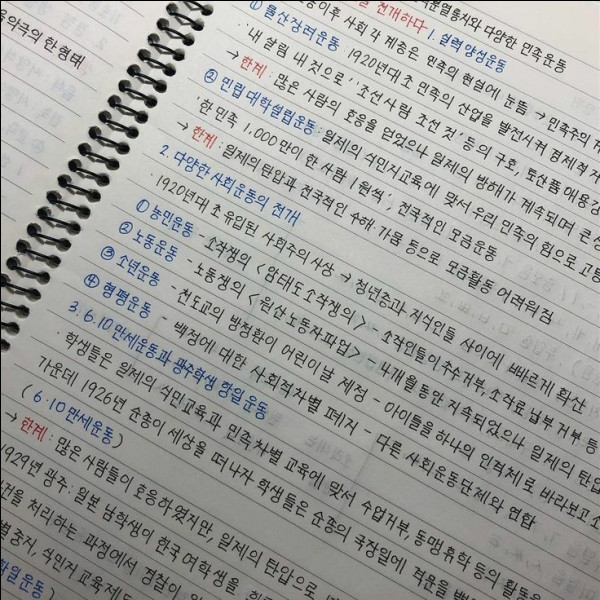 의 한 형태
전개하다 1. 실력양성운동
민족분열통치와 다양한 민족운동
이후 사회 각 계층은 민족의 현실에 눈뜸 → 민족주의
① 물산장려운동 1920년대 초 민족의 산업을 발전시켜 경제적
'내 살림 내 것으로', '조선 사람 조선 것' 등의 구호, 토산품 애용
→ 한계: 많은 사람의 호응을 얻었으나 일제의 방해가 계속되며 큰
② 민립대학설립운동: 일제의 식민지교육에 맞서 우리 민족의 힘으로 고등
'한 민족 1,000만이 한 사람 1원씩', 전국적인 모금운동
→ 한계: 일제의 탄압과 전국적인 수해·가뭄 등으로 모금활동 어려워짐
2. 다양한 사회운동의 전개
· 1920년대 초 유입된 사회주의 사상 → 청년층과 지식인들 사이에 빠르게 확산
① 농민운동 - 소작쟁의 <암태도소작쟁의> - 소작인들이 추수거부, 소작료 납부 거부 등
② 노동운동 - 노동쟁의 <원산노동자파업> - 4개월 동안 지속되었으나 일제의 탄압
③ 소년운동 - 천도교의 방정환이 어린이날 제정 - 아이들을 하나의 인격체로 바라보고
④ 형평운동 - 백정에 대한 사회적 차별 폐지 - 다른 사회운동단체와 연합
3. 6.10 만세운동과 광주학생 항일운동
· 학생들은 일제의 식민교육과 민족차별 교육에 맞서 수업거부, 동맹휴학 등의 활동을
가운데 1926년 순종이 세상을 떠나자 학생들은 순종의 국장일에 격문을
(6·10만세운동)
→ 한계: 많은 사람들이 호응하였지만, 일제의 탄압으로
1929년 광주: 일본 남학생이 한국 여학생을
건을 처리하는 과정에서 경찰이
별 중지, 식민지 교육제도
학생운동)